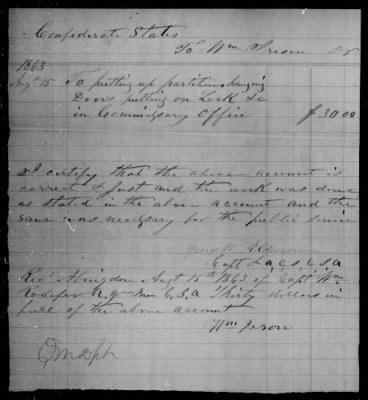 Confederate States
To Wm Ireson Dr
1863
Augt 15 To putting up partition hanging
Doors putting on Lock &c
in Commissary Office $ 30.00
I certify that the above account is
correct & just and the work was done
as stated in the above account and the
same was necessary for the public service
Capt & A.C.S. C.S.A
Recd Abingdon Augt 15th 1863 of Capt Wm
Rodefer A.Q.M. C.S.A Thirty dollars in
full of the above account
Wm Ireson